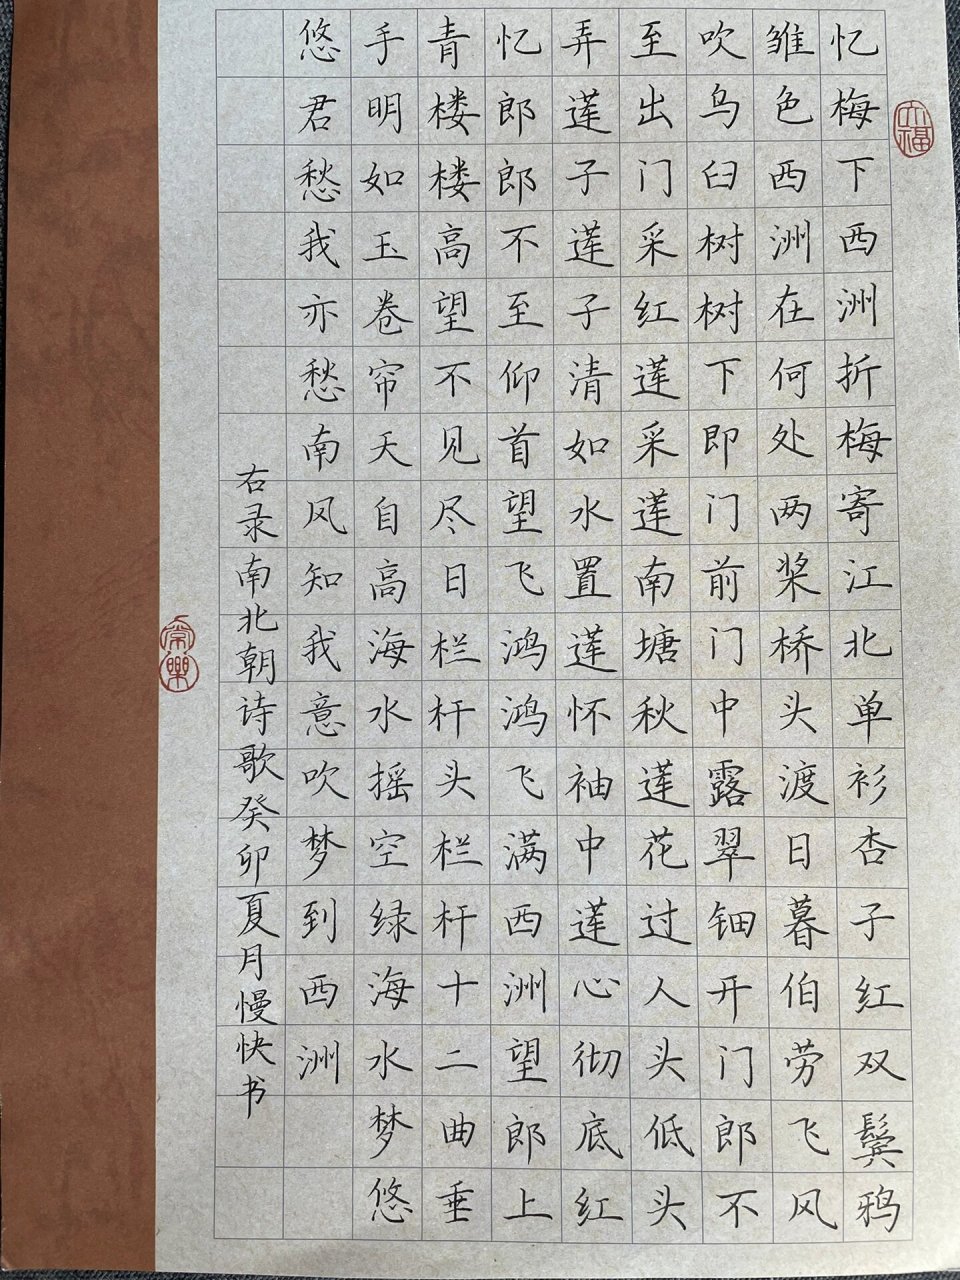 忆梅下西洲折梅寄江北单衫杏子红双鬓鸦
雏色西洲在何处两桨桥头渡日暮伯劳飞风
吹乌臼树树下即门前门中露翠钿开门郎不
至出门采红莲采莲南塘秋莲花过人头低头
弄莲子莲子清如水置莲怀袖中莲心彻底红
忆郎郎不至仰首望飞鸿鸿飞满西洲望郎上
青楼楼高望不见尽日栏杆头栏杆十二曲垂
手明如玉卷帘天自高海水摇空绿海水梦悠
悠君愁我亦愁南风知我意吹梦到西洲
右录南北朝诗歌癸卯夏月慢快书
常樂